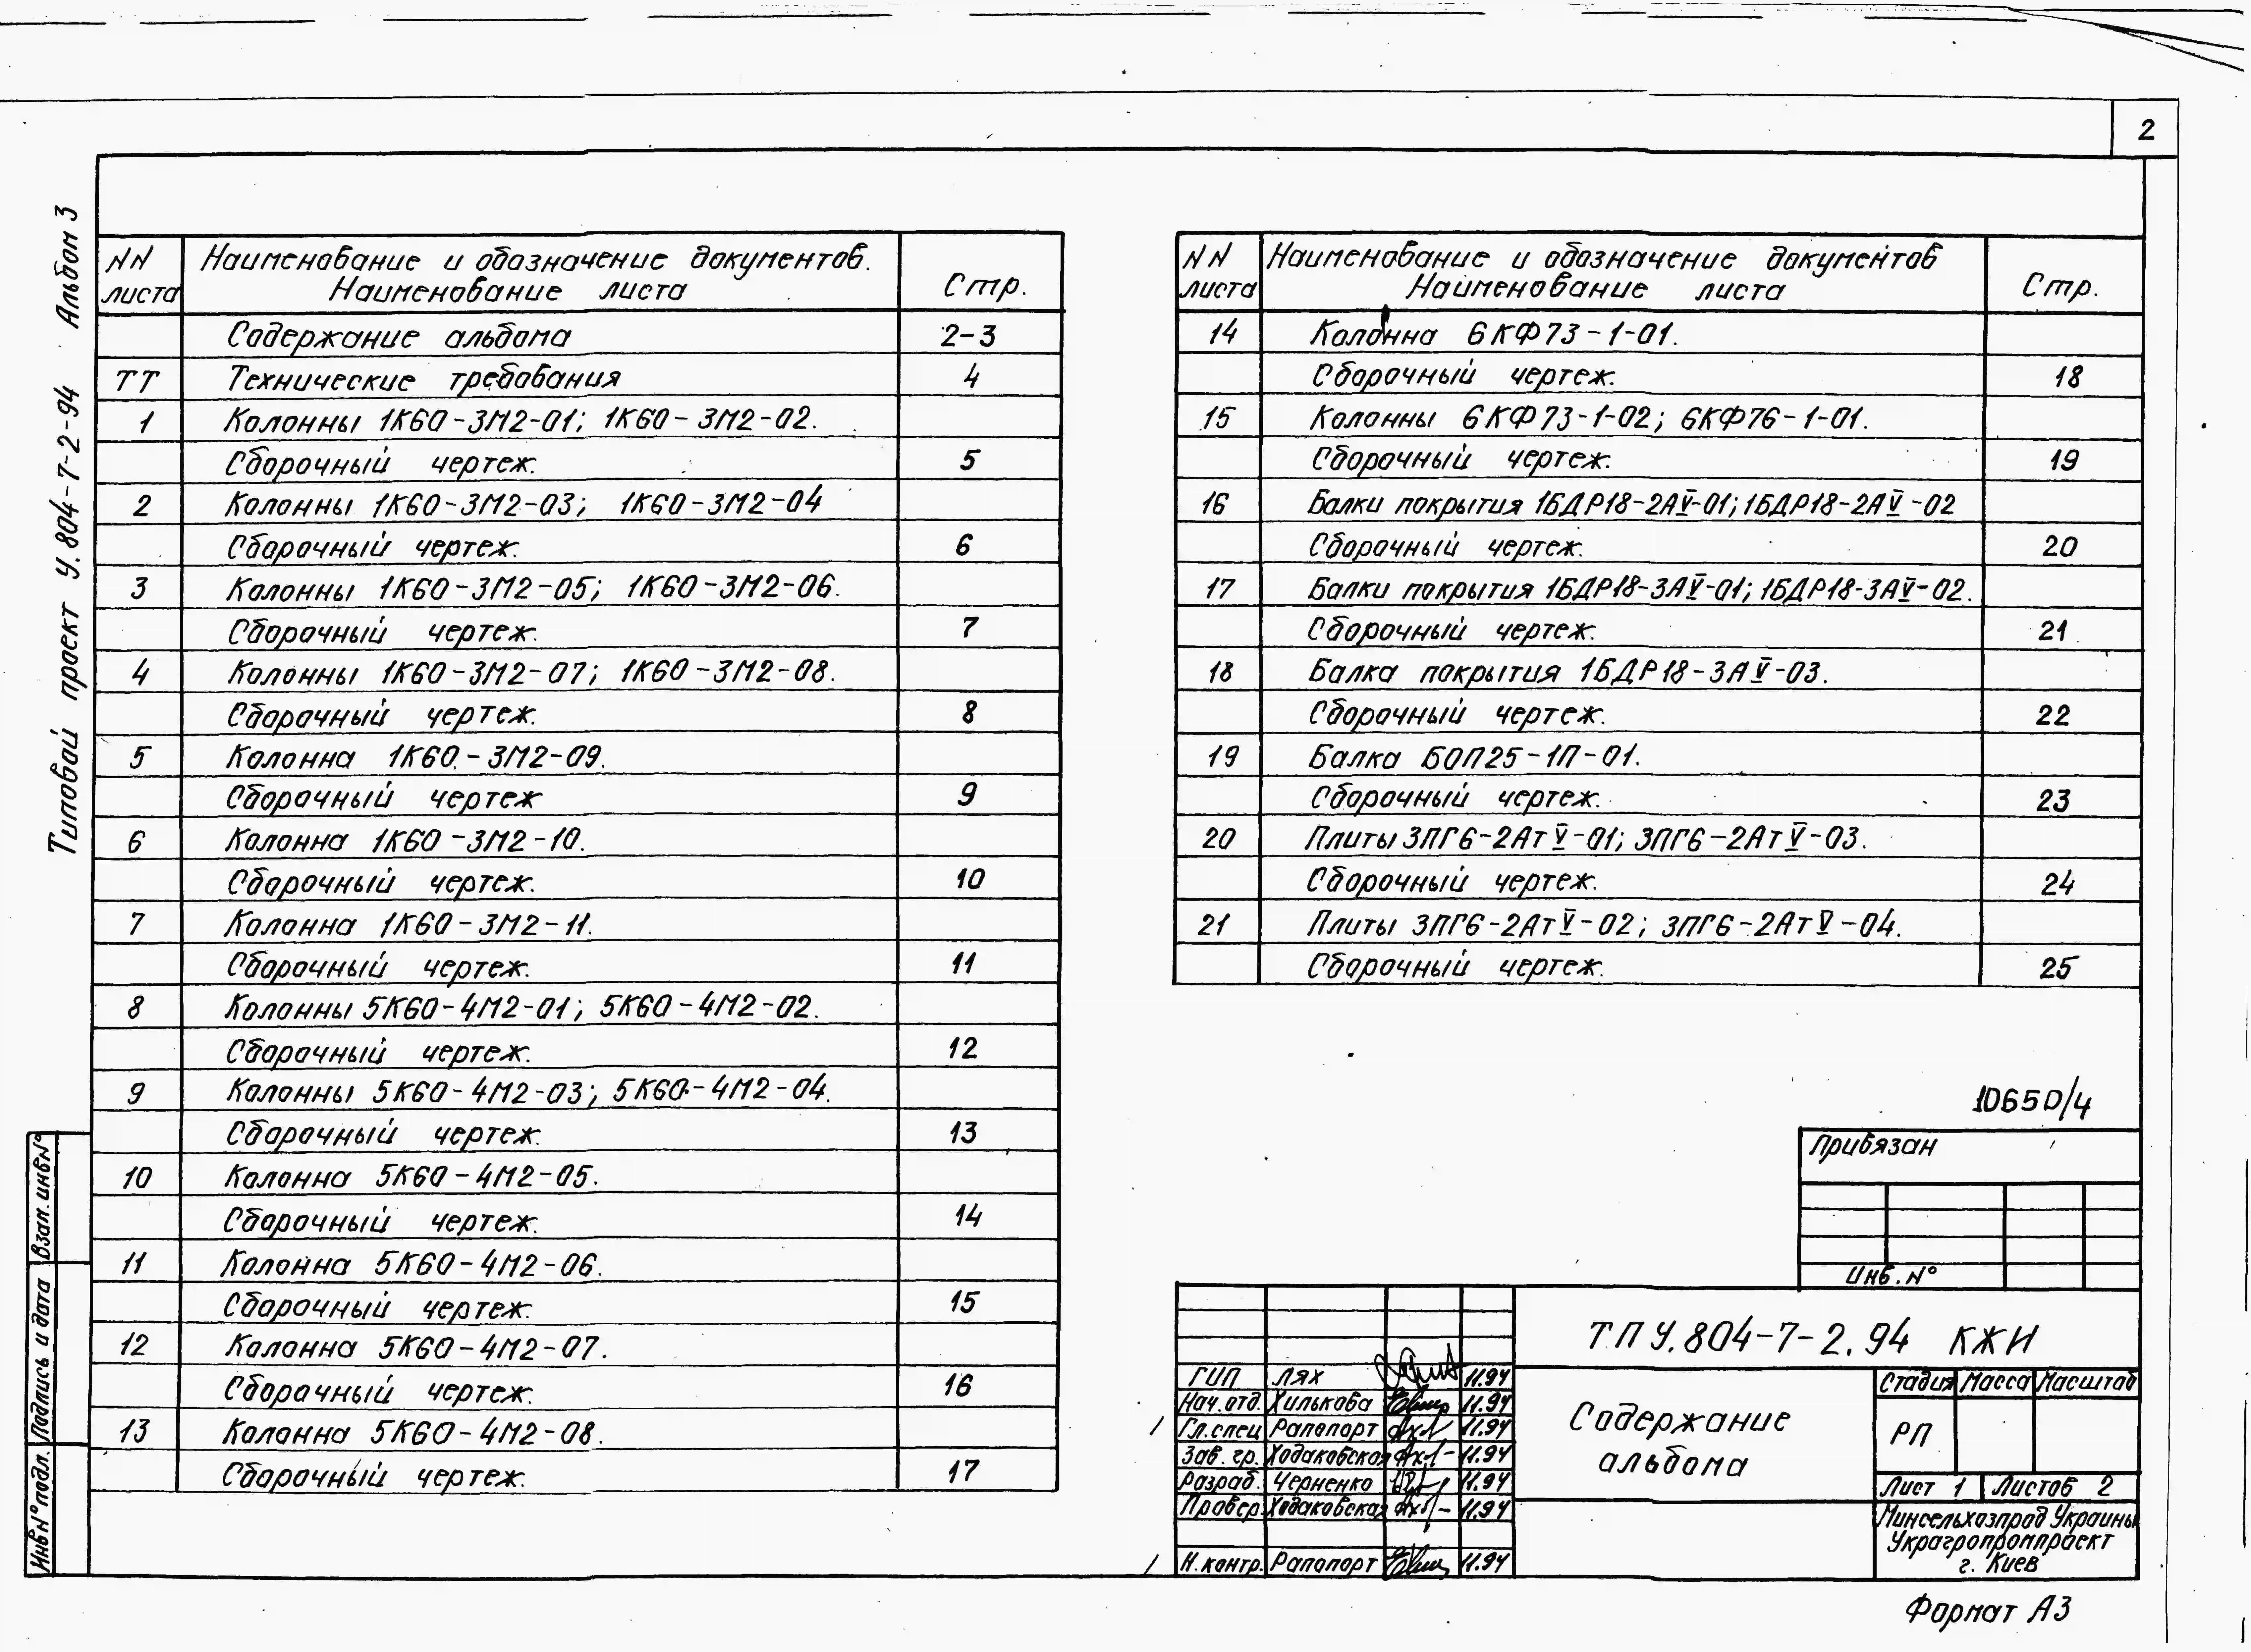 2
Типовой проект У.804-7-2-94 Альбом 3
NN листа
Наименование и обозначение документов. Наименование листа
Стр.
Содержание альбома 2-3
ТТ Технические требования 4
1 Колонны 1К60-3М2-01; 1К60-3М2-02.
Сборочный чертеж. 5
2 Колонны 1К60-3М2-03; 1К60-3М2-04
Сборочный чертеж. 6
3 Колонны 1К60-3М2-05; 1К60-3М2-06.
Сборочный чертеж. 7
4 Колонны 1К60-3М2-07; 1К60-3М2-08.
Сборочный чертеж. 8
5 Колонна 1К60-3М2-09.
Сборочный чертеж 9
6 Колонна 1К60-3М2-10.
Сборочный чертеж. 10
7 Колонна 1К60-3М2-11.
Сборочный чертеж. 11
8 Колонны 5К60-4М2-01; 5К60-4М2-02.
Сборочный чертеж. 12
9 Колонны 5К60-4М2-03; 5К60-4М2-04.
Сборочный чертеж. 13
10 Колонна 5К60-4М2-05.
Сборочный чертеж. 14
11 Колонна 5К60-4М2-06.
Сборочный чертеж. 15
12 Колонна 5К60-4М2-07.
Сборочный чертеж. 16
13 Колонна 5К60-4М2-08.
Сборочный чертеж. 17
NN листа
Наименование и обозначение документов Наименование листа
Стр.
14 Колонна 6КФ73-1-01.
Сборочный чертеж. 18
15 Колонны 6КФ73-1-02; 6КФ76-1-01.
Сборочный чертеж. 19
16 Балки покрытия 1БДР18-2АV-01; 1БДР18-2АV-02
Сборочный чертеж. 20
17 Балки покрытия 1БДР18-3АV-01; 1БДР18-3АV-02.
Сборочный чертеж. 21
18 Балка покрытия 1БДР18-3АV-03.
Сборочный чертеж. 22
19 Балка БОП25-1П-01.
Сборочный чертеж. 23
20 Плиты 3ПГ6-2АтV-01; 3ПГ6-2АтV-03.
Сборочный чертеж. 24
21 Плиты 3ПГ6-2АтV-02; 3ПГ6-2АтV-04.
Сборочный чертеж. 25
10650/4
Привязан
Инв. N°
ТП У.804-7-2.94 КЖИ
ГИП Лях 11.94
Нач.отд. Хилькова 11.94
Гл.спец Рапопорт 11.94
Зав. гр. Ходаковская 11.94
Разраб. Черненко 11.94
Провер. Ходаковская 11.94
Н.контр. Рапопорт 11.94
Содержание
альбома
Стадия Масса Масштаб
РП
Лист 1 Листов 2
Минсельхозпрод Украины
Украгропромпроект
г. Киев
Формат А3
Взам.инвN°
Подпись и дата
ИнвN°подл.